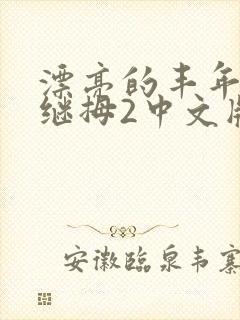 漂亮的丰年
继拇2中文版
安徽临泉韦寨